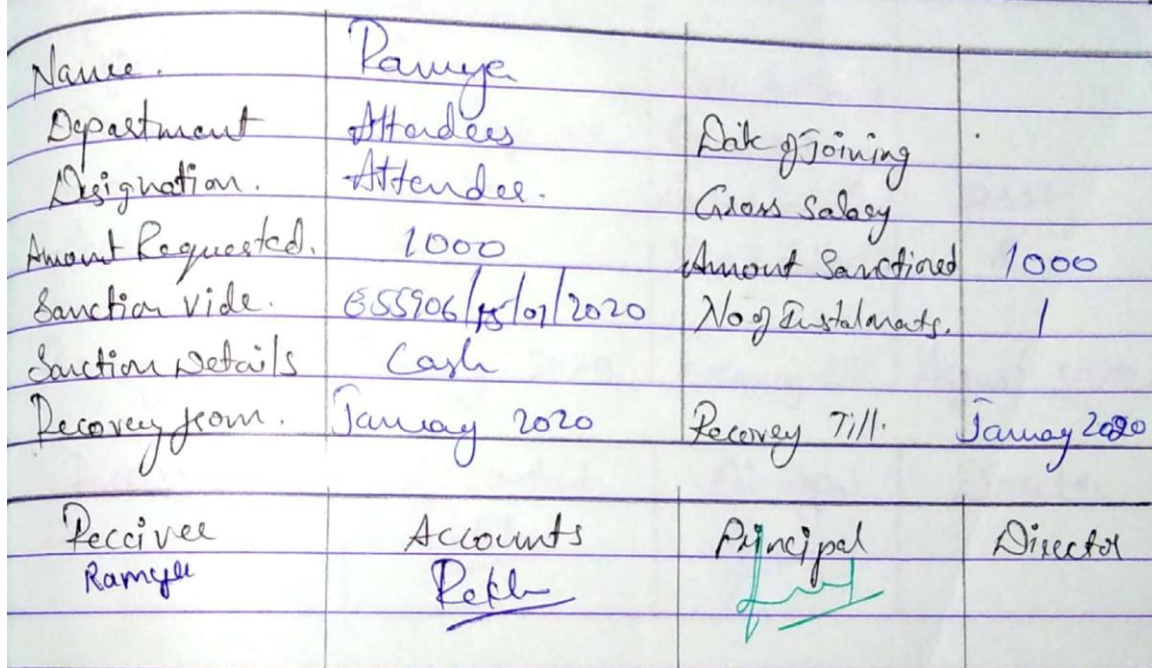 Name. Ramya
Department Attendees Date of Joining
Designation. Attendee. Gross Salary
Amount Requested. 1000 Amount Sanctioned 1000
Sanction Vide. 655906/15/01/2020 No of Instalmats. 1
Sanction Details Cash
Recovey from. January 2020 Recovey Till. January 2020
Receiver Accounts Principal Director
Ramya Rekh